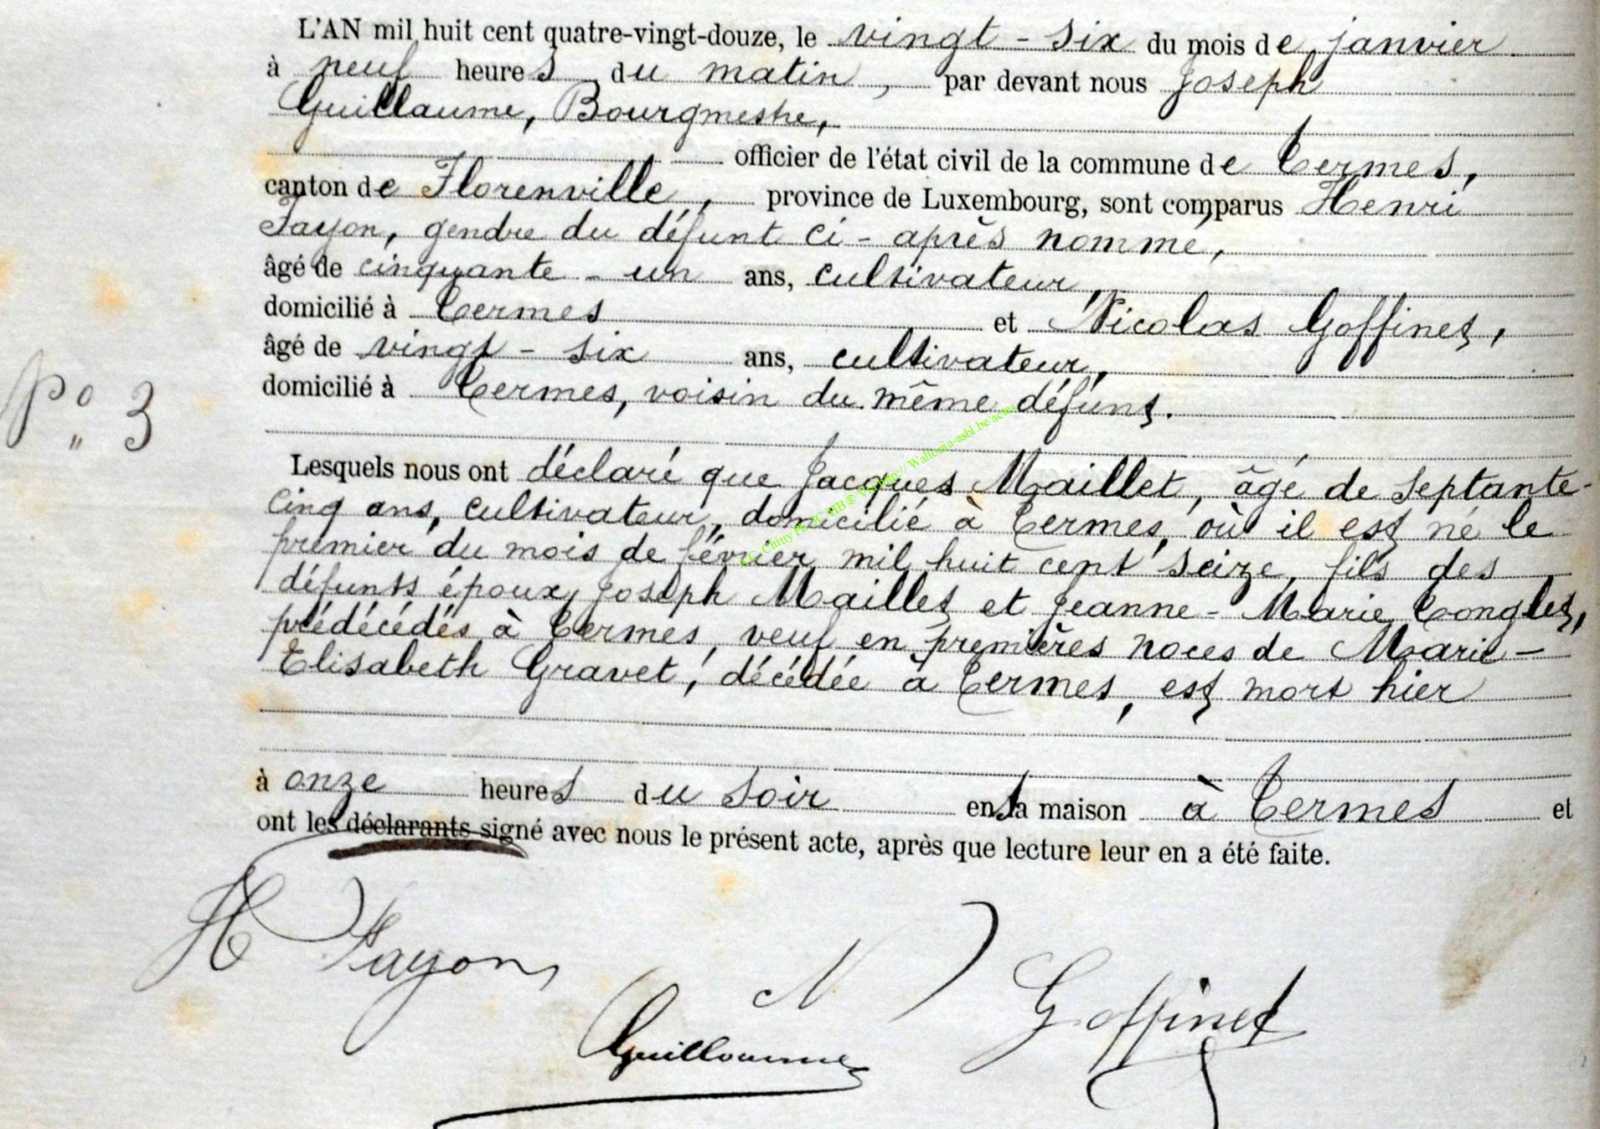 L'AN mil huit cent quatre-vingt-douze, le vingt-six du mois de janvier
à neuf heures du matin, par devant nous Joseph
Guillaume, Bourgmestre,
officier de l'état civil de la commune de Termes,
canton de Florenville, province de Luxembourg, sont comparus Henri
Fayon, gendre du défunt ci-après nommé,
âgé de cinquante-un ans, cultivateur,
domicilié à Termes et Nicolas Goffinet,
âgé de vingt-six ans, cultivateur,
domicilié à Termes, voisin du même défunt.
N° 3
Lesquels nous ont déclaré que Jacques Maillet, âgé de septante-
cinq ans, cultivateur, domicilié à Termes, où il est né le
premier du mois de février mil huit cent seize, fils des
défunts époux Joseph Maillet et Jeanne-Marie Conglet,
prédécédés à Termes, veuf en premières noces de Marie-
Elisabeth Gravet, décédée à Termes, est mort hier
à onze heures du soir en sa maison à Termes et
ont les déclarants signé avec nous le présent acte, après que lecture leur en a été faite.
H Fayon
N Goffinet
Guillaume